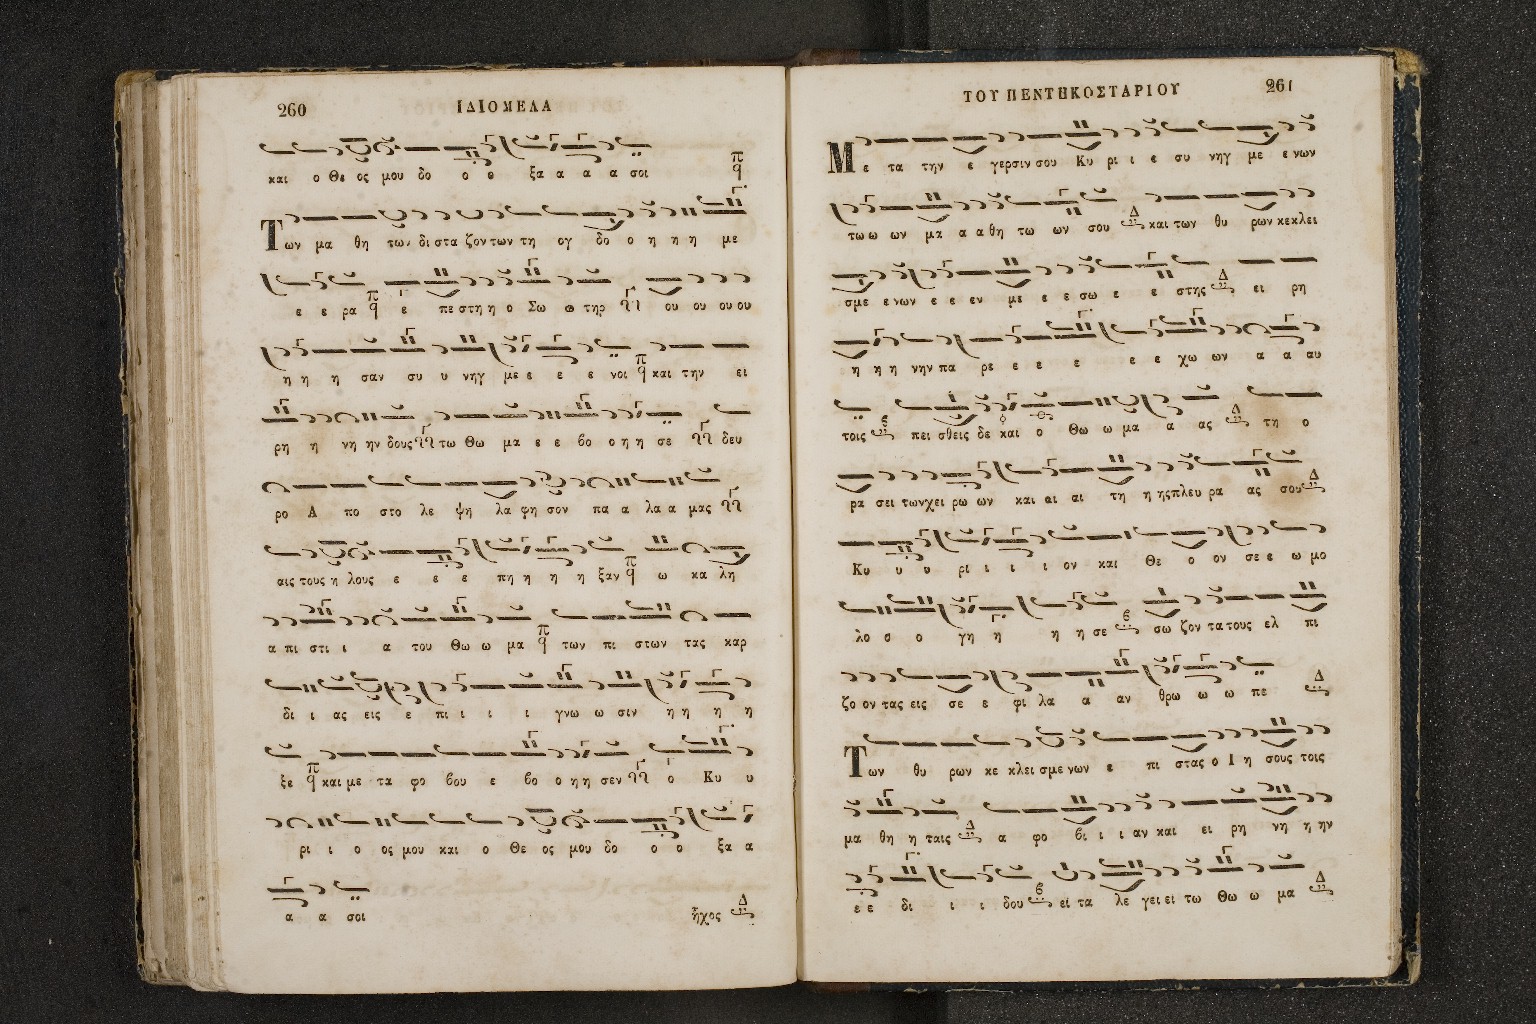 260
ΙΔΙΟΜΕΛΑ
και ο Θε ος μου δο ο ο ξα α α α σοι
Των μα θη των δι στα ζον των τη ογ δο ο η η η με
ε ε ρα ε πε στη η ο Σω ω τηρ ου ου ου ου
η η η σαν συ υ νηγ με ε ε ε νοι και την ει
ρη η νη ην δους τω Θω μα ε ε βο ο η η σε δευ
ρο Α πο στο λε ψη λα φη σον πα α λα α μας
αις τους η λους ε ε ε πη η η η ξαν ω κα λη
α πι στι ι α του Θω ω μα των πι στων τας καρ
δι ι ας εις ε πι ι ι ι γνω ω σιν η η η η
ξε και με τα φο βου ε βο ο η η σεν ο Κυ υ
ρι ι ο ος μου και ο Θε ος μου δο ο ο ξα α
α α σοι ἦχος
ΤΟΥ ΠΕΝΤΗΚΟΣΤΑΡΙΟΥ
261
Με τα την ε γερσιν σου Κυ ρι ι ε συ νηγ με ε νων
τω ω ων μα α α θη τω ων σου και των θυ ρων κεκλει
σμε ε νων ε ε εν με ε ε σω ε ε στης ει ρη
η η η νην πα ρε ε ε ε ε ε χω ων α α αυ
τοις πει σθεις δε και ο Θω ω μα α ας τη ο
ρα σει των χει ρω ων και αι αι τη η ης πλευ ρα ας σου
Κυ υ υ ρι ι ι ι ον και Θε ο ον σε ε ω μο
λο ο ο γη η η η σε σω ζον τα τους ελ πι
ζο ον τας εις σε ε φι λα α αν θρω ω ω πε
Των θυ ρων κε κλει σμε νων ε πι στας ο Ι η σους τοις
μα θη η ταις α φο βι ι ι αν και ει ρη νη η ην
ε ε δι ι ι δου εί τα λε γει ει τω Θω ω μα